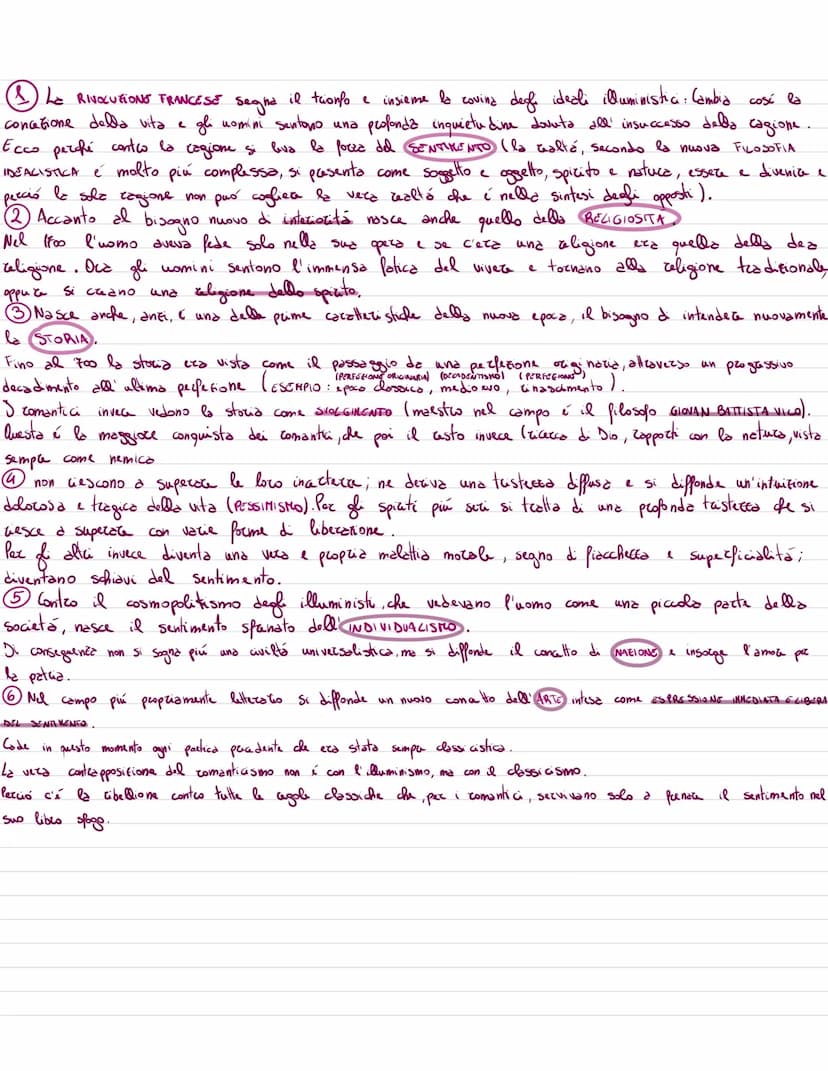 ① La RIVOLUZIONE FRANCESE segna il trionfo e insieme la rovina degli ideali illuministici. Cambia così la
concezione della vita e gli uomini sentono una profonda inquietudine dovuta all'insuccesso della ragione.
Ecco perché contro la ragione si leva la forza del SENTIMENTO (la realtà, secondo la nuova FILOSOFIA
IDEALISTICA é molto più complessa, si presenta come soggetto e oggetto, spirito e natura, essere e divenire e
perciò la sola ragione non può cogliere la vera realtà che è nella sintesi degli opposti).
② Accanto al bisogno nuovo di interiorità nasce anche quello della RELIGIOSITÀ.
Nel 1700 l'uomo aveva fede solo nella sua opera e se c'era una religione era quella della dea
religione. Ora gli uomini sentono l'immensa fatica del vivere e tornano alla religione tradizionale,
oppure si creano una religione dello spirito.
③ Nasce anche, anzi, è una delle prime caratteristiche della nuova epoca, il bisogno di intendere nuovamente
la STORIA.
Fino al 700 la storia era vista come il passaggio da una perfezione originaria, attraverso un progressivo
(PERFEZIONE ORIGINARIA) (DECADENTISMO) (PERFEZIONE)
decadimento all'ultima perfezione (ESEMPIO: epoca classica, medioevo, rinascimento).
I romantici invece vedono la storia come SVOLGIMENTO (maestro nel campo é il filosofo GIOVAN BATTISTA VICO).
Questa é la maggiore conquista dei romantici, che poi il resto invece (ricerca di Dio, rapporti con la natura, vista
sempre come nemica
④ non riescono a superare le loro incertezze; ne deriva una tristezza diffusa e si diffonde un'intuizione
dolorosa e tragica della vita (PESSIMISMO). Per gli spiriti più seri si tratta di una profonda tristezza che si
riesce a superare con varie forme di liberazione.
Per gli altri invece diventa una vera e propria malattia morale, segno di fiacchezza e superficialità;
diventano schiavi del sentimento.
⑤ Contro il cosmopolitismo degli illuministi, che vedevano l'uomo come una piccola parte della
società, nasce il sentimento sfrenato dell'INDIVIDUALISMO.
Di conseguenza non si sogna più una civiltà universalistica, ma si diffonde il concetto di NAZIONE e insorge l'amore per
la patria.
⑥ Nel campo più propriamente letterario si diffonde un nuovo concetto dell'ARTE intesa come ESPRESSIONE IMMEDIATA E LIBERA
DEL SENTIMENTO.
Cade in questo momento ogni poetica precedente che era stata sempre classicistica.
La vera contrapposizione del romanticismo non é con l'illuminismo, ma con il classicismo.
Perciò c'é la ribellione contro tutte le regole classiche che, per i romantici, servivano solo a frenare il sentimento nel
suo libero sfogo.